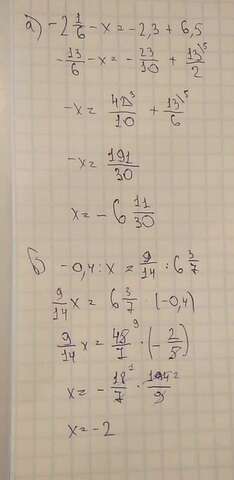 а) -2 1/6 - x = -2,3 + 6,5
-13/6 - x = -23/10 + 13\5/2
-x = 42\3/10 + 13\5/6
-x = 191/30
x = -6 11/30
б) -0,4 : x = 9/14 : 6 3/7
9/14 x = 6 3/7 · (-0,4)
9/14 x = 45 9/7 · (-2/5)
x = -18/7 · 14 2/9
x = -2